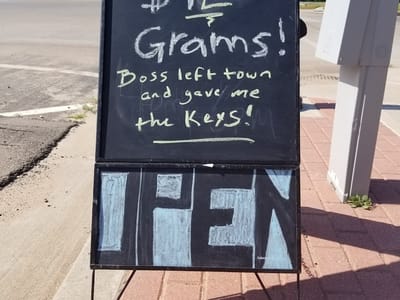 $12
Grams!
Boss left town
and gave me
the Keys!
OPEN